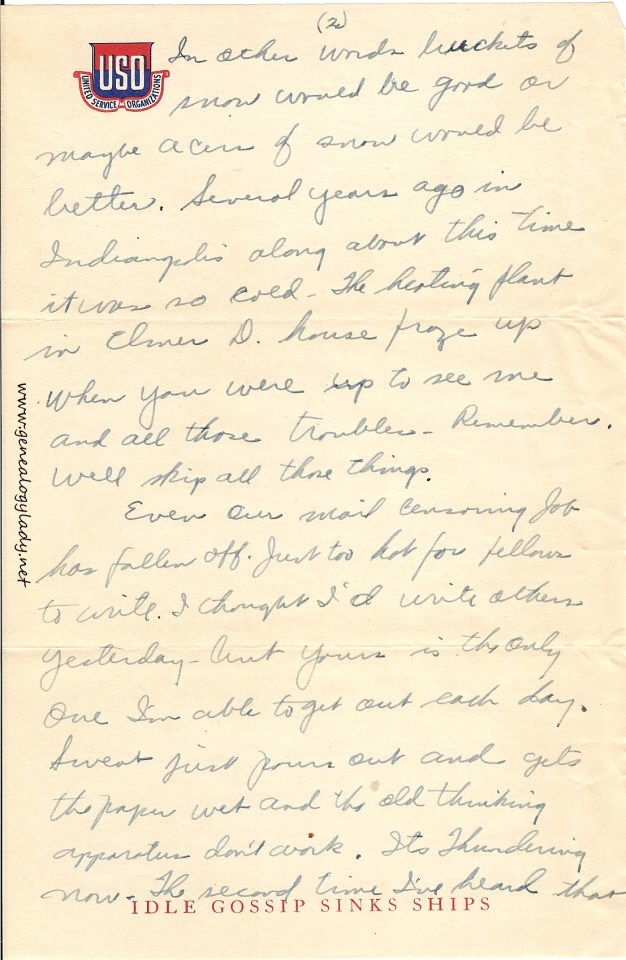 (2)
USO
UNITED SERVICE ORGANIZATIONS
In other words buckets of
snow would be good or
maybe acers of snow would be
better. Several years ago in
Indianpolis along about this time
it was so cold - The heating plant
in Elmer D. house froze up
when you were up to see me
and all those troubles - Remember.
Well skip all those things.
Even our mail censoring Job
has fallen off. Just too hot for fellows
to write. I thought I'd write others
yesterday - but yours is the only
one I'm able to get out each day.
Sweat just pours out and gets
the paper wet and the old thinking
apparatus don't work. Its Thundering
now - The second time I've heard that
IDLE GOSSIP SINKS SHIPS
www.genealogylady.net